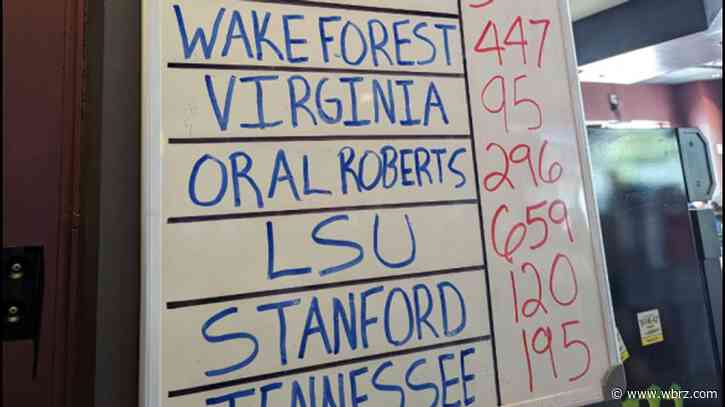 WAKE FOREST 447
VIRGINIA 95
ORAL ROBERTS 296
LSU 659
STANFORD 120
TENNESSEE 195
www.wbrz.com